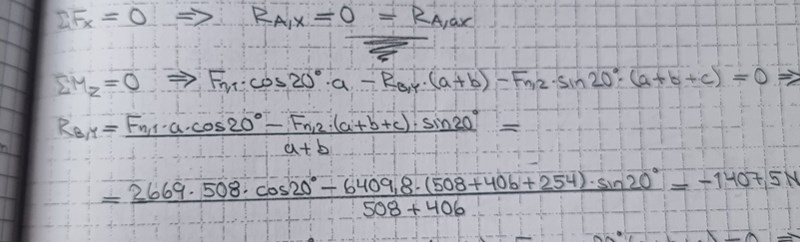 ΣFx = 0 => RA,x = 0 = RA,ax
ΣMz = 0 => Fn,1·cos20°·a - RB,Y·(a+b) - Fn,2·sin20°·(a+b+c) = 0 =>
RB,Y = Fn,1·a·cos20° - Fn,2·(a+b+c)·sin20° =
a+b
= 2669·508·cos20° - 6409,8·(508+406+254)·sin20° = -1407,5 N
508+406